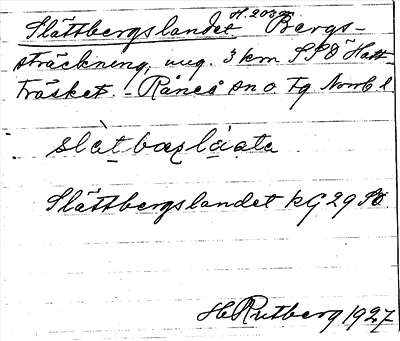 Slättbergslandet H. 203 m Bergs-
sträckning, ung. 3 km SSO Hatt-
träsket. Råneå sn o. tg Norrb. l.
slàt bæʀlạ́ạta
Slättbergslandet kG 29 SO.
H Rutberg 1927